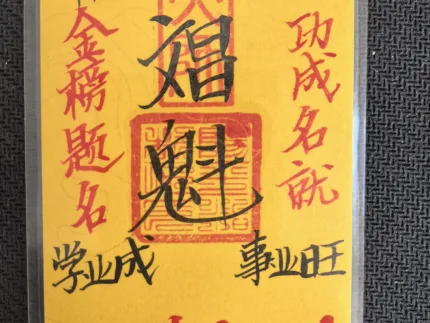 金榜题名
魁
功成名就
学业成
事业旺